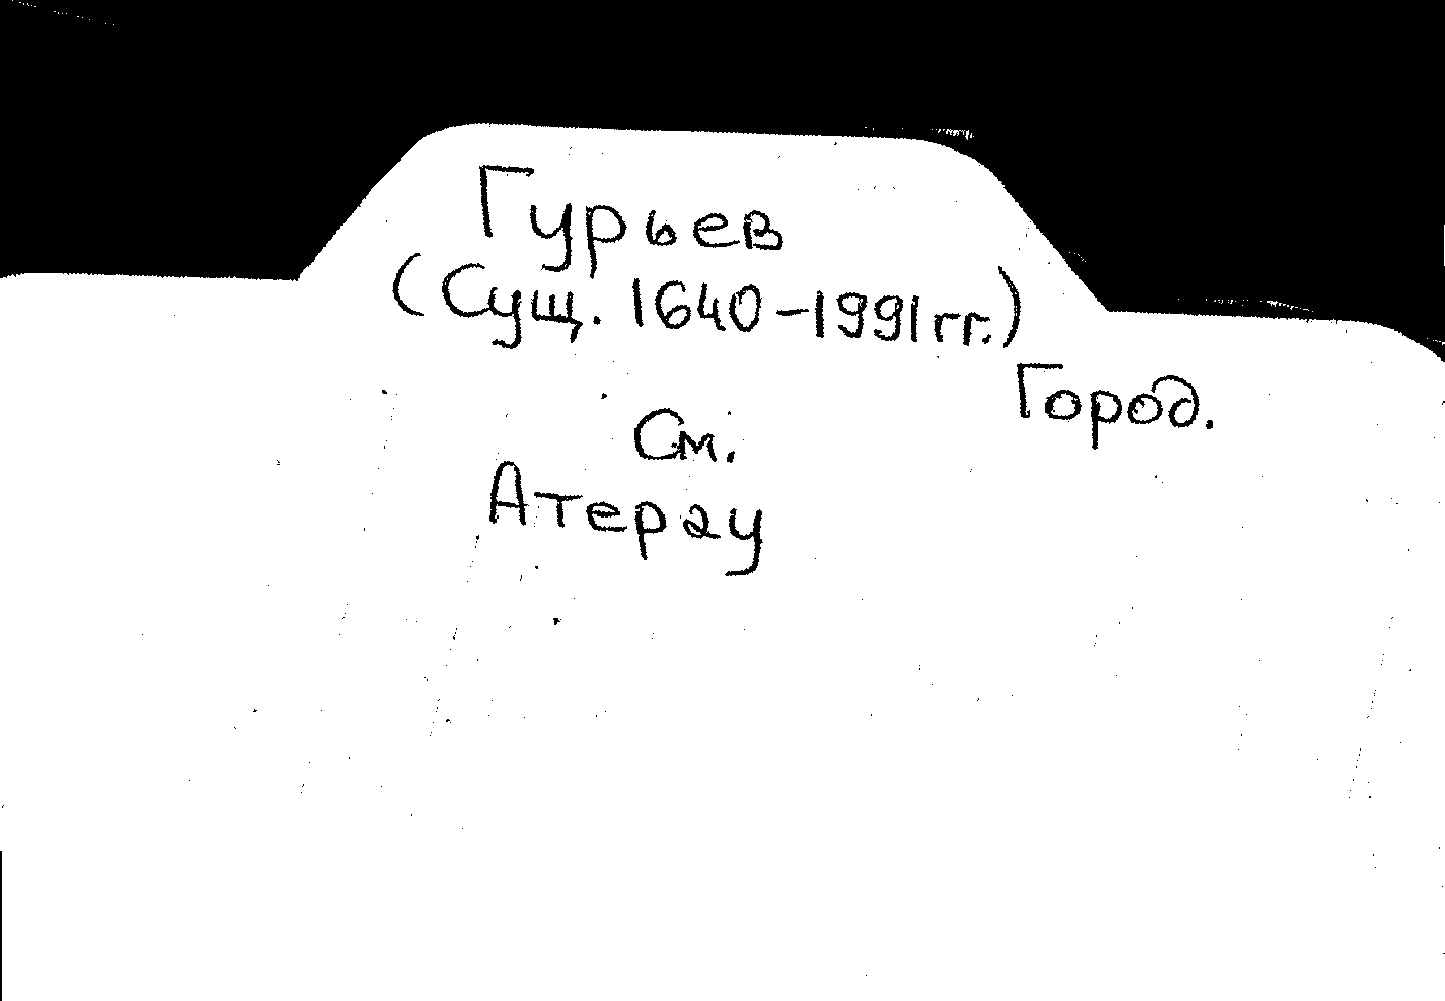 Гурьев
(Сущ. 1640-1991 гг.)
Город.
См.
Атерау